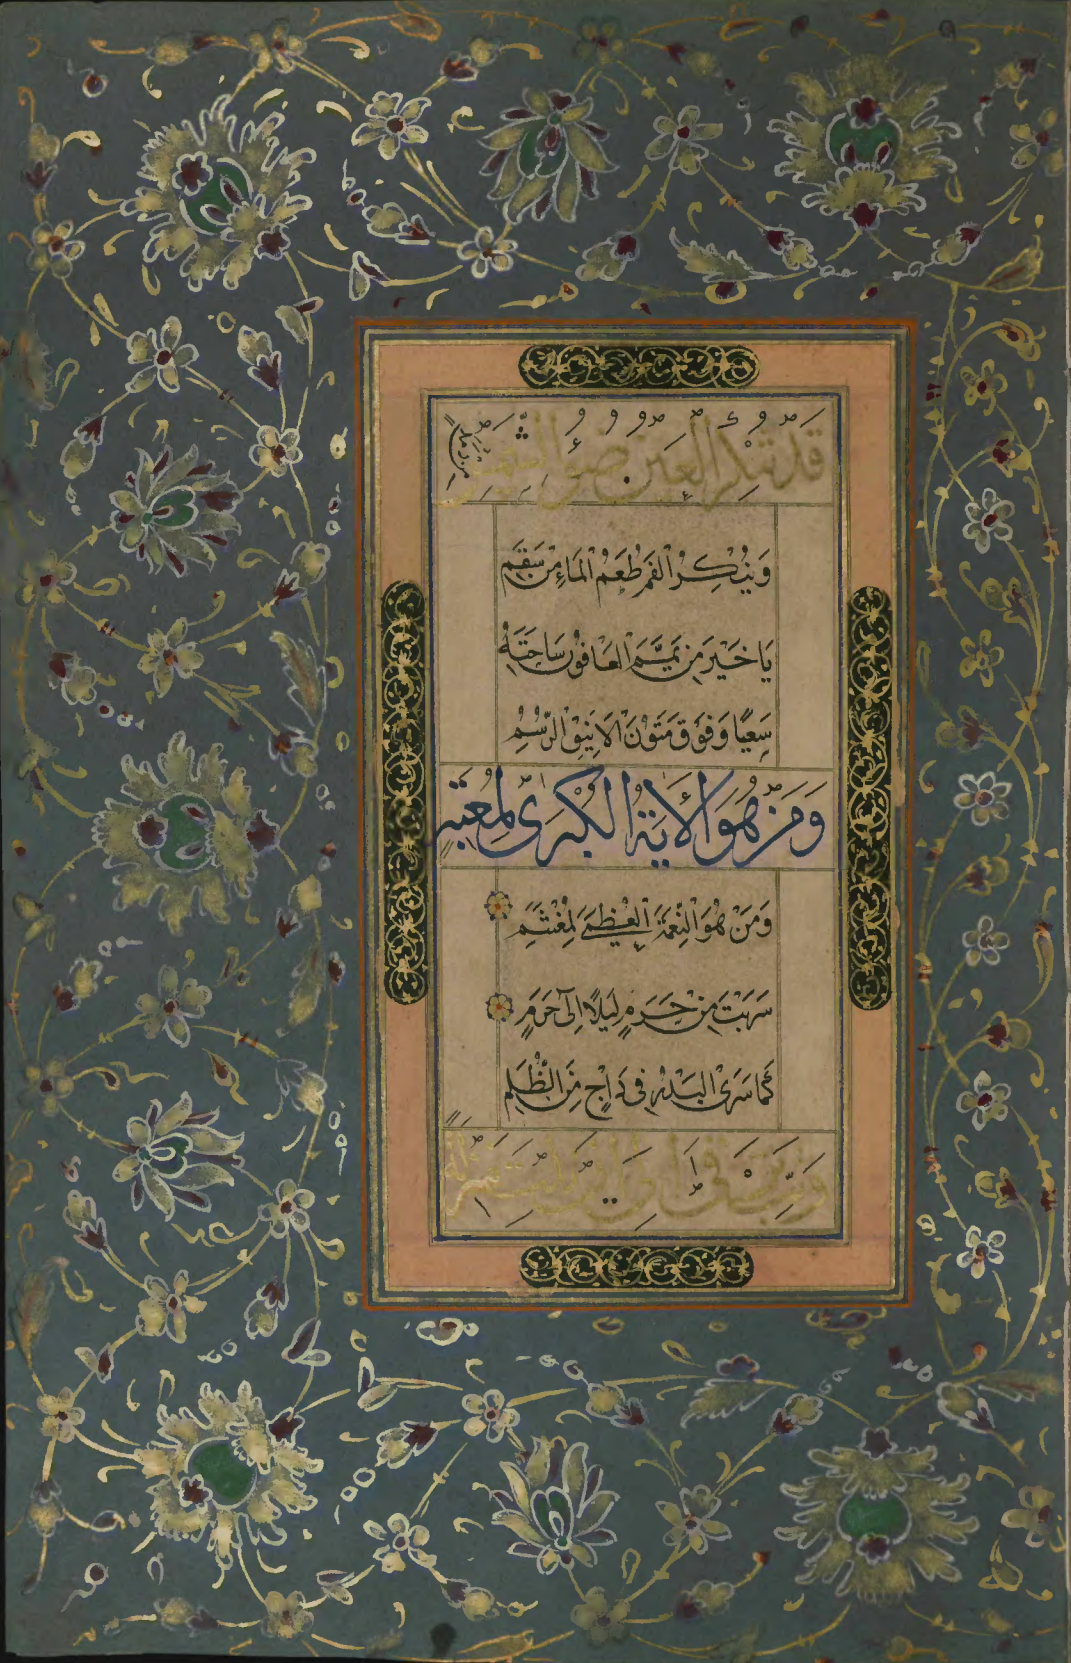 قد تنكر العين ضوء الشمس من رمد
وَيُنْكِرُ الْفَمُ طَعْمَ الْمَاءِ مِنْ سَقَمِ
يَا خَيْرَ مَنْ يَمَّمَ الْعَافُونَ سَاحَتَهُ
سَعْيًا وَفَوْقَ مُتُونِ الْاَيْنُقِ الرُّسُمِ
وَمَنْ هُوَ الْاٰيَةُ الْكُبْرٰى لِمُعْتَبِرٍ
وَمَنْ هُوَ النِّعْمَةُ الْعُظْمٰى لِمُغْتَنِمِ
سَرَيْتَ مِنْ حَرَمٍ لَيْلًا اِلٰى حَرَمٍ
كَمَا سَرَى الْبَدْرُ فِى دَاجٍ مِنَ الظُّلَمِ
وبت ترقى الى ان نلت منزلة